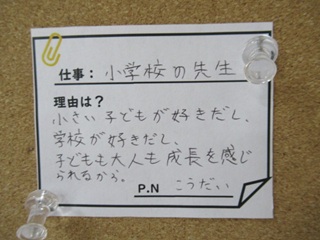 仕事：小学校の先生
理由は？
小さい子どもが好きだし、
学校が好きだし、
子どもも大人も成長を感じ
られるから。
P.N こうだい